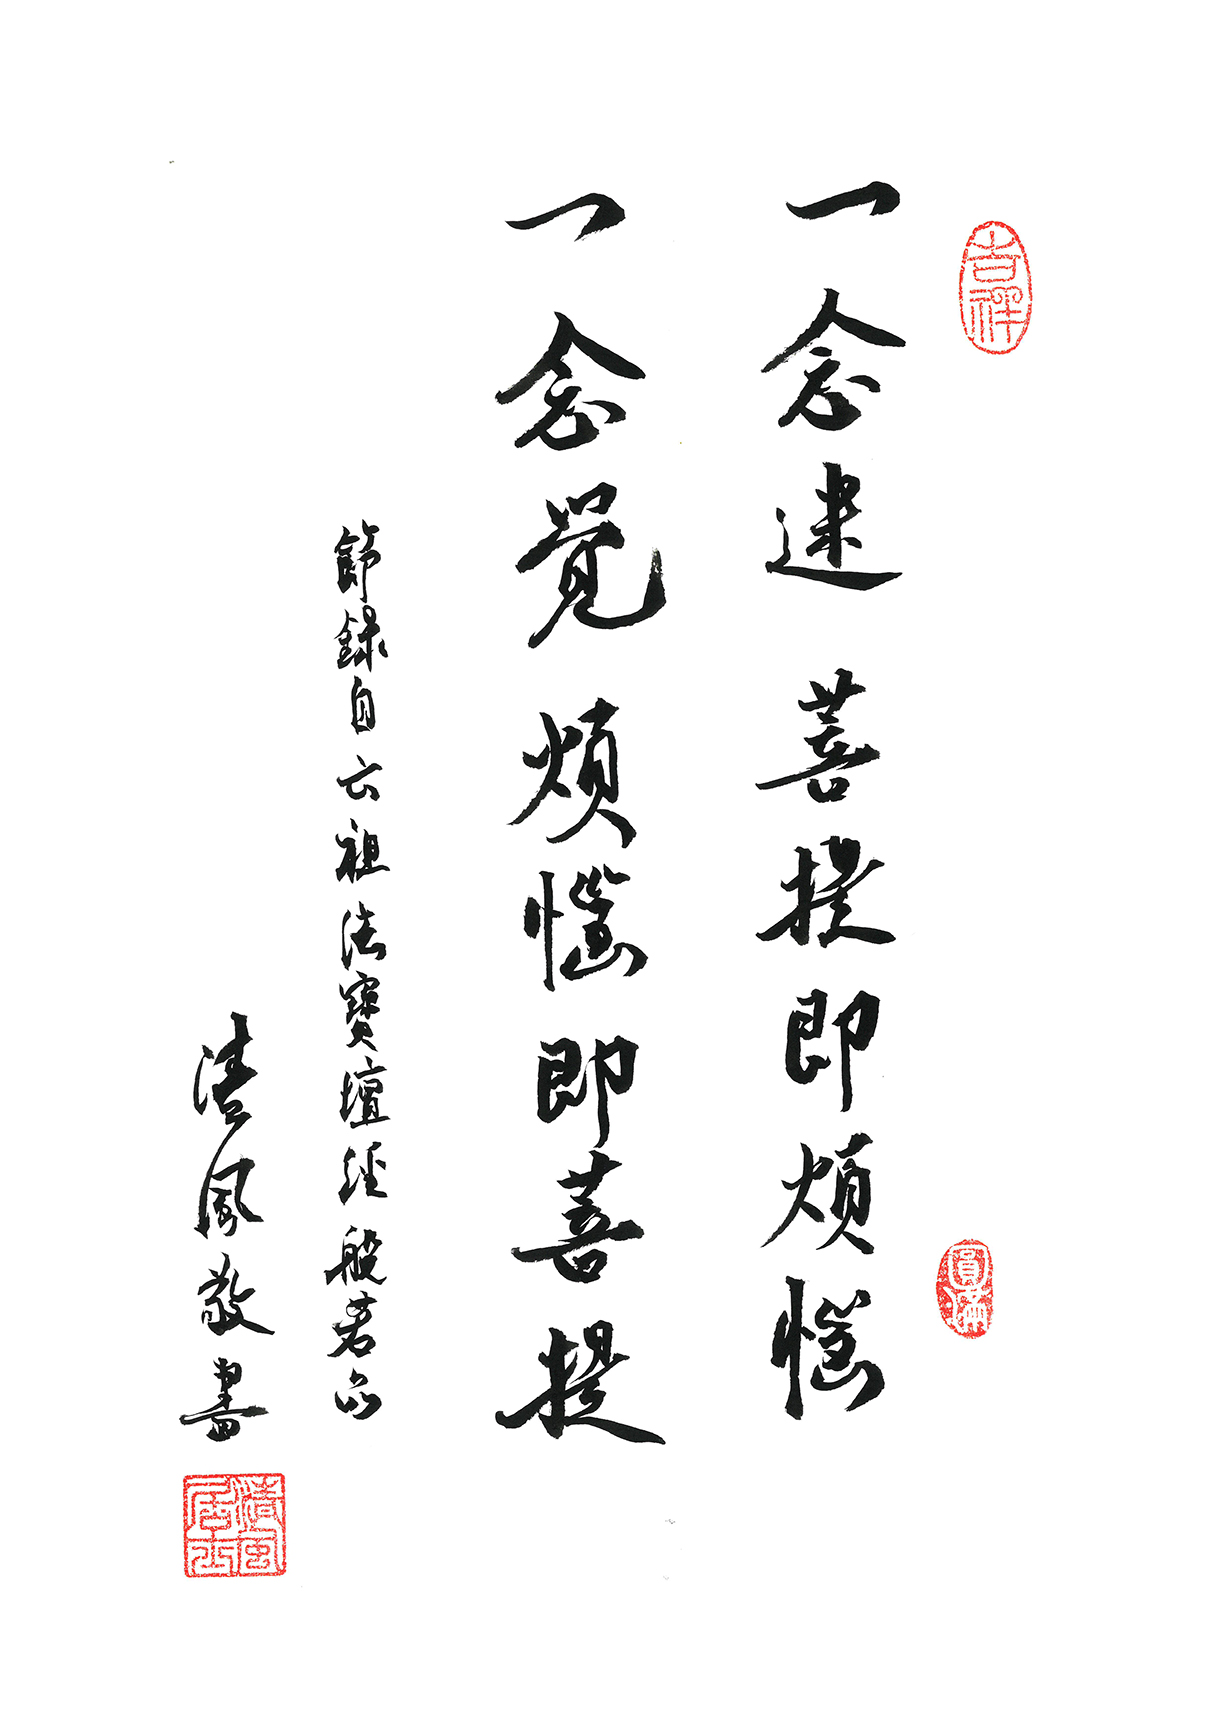 吉祥
一念迷 菩提即煩惱
一念覺 煩惱即菩提
節錄自六祖法寶壇經般若品
清風敬書
圓滿
清風居士